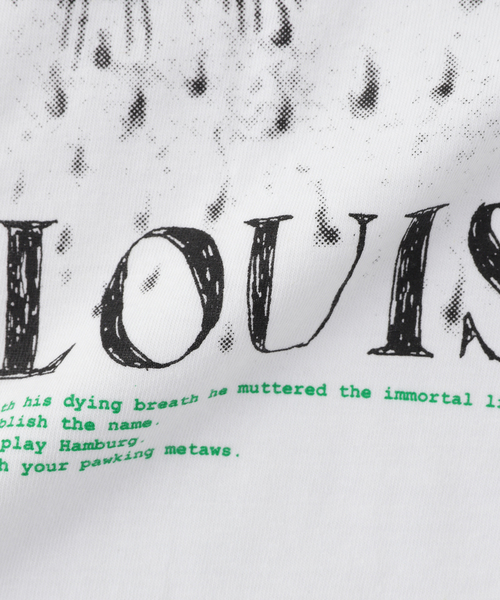 LOUIS
th his dying breath he muttered the immortal li
blish the name.
play Hamburg.
h your pawking metaws.